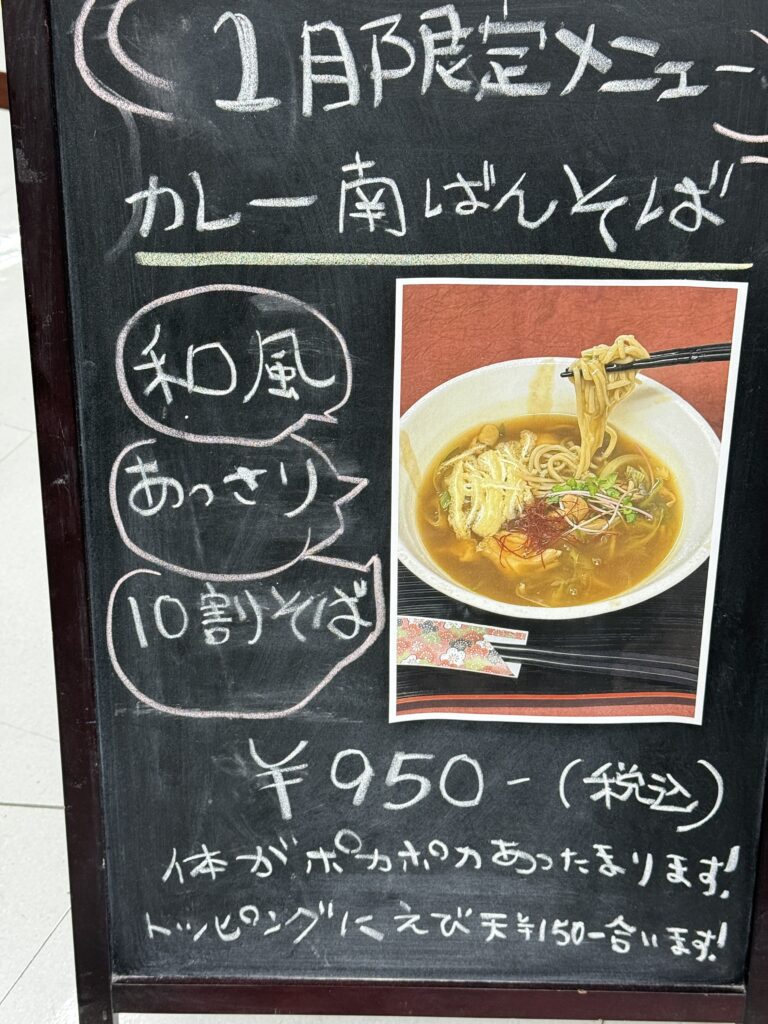 1月限定メニュー
カレー南ばんそば
和風
あっさり
10割そば
¥950-(税込)
体がポカポカあったまります!
トッピングにえび天¥150-合います!